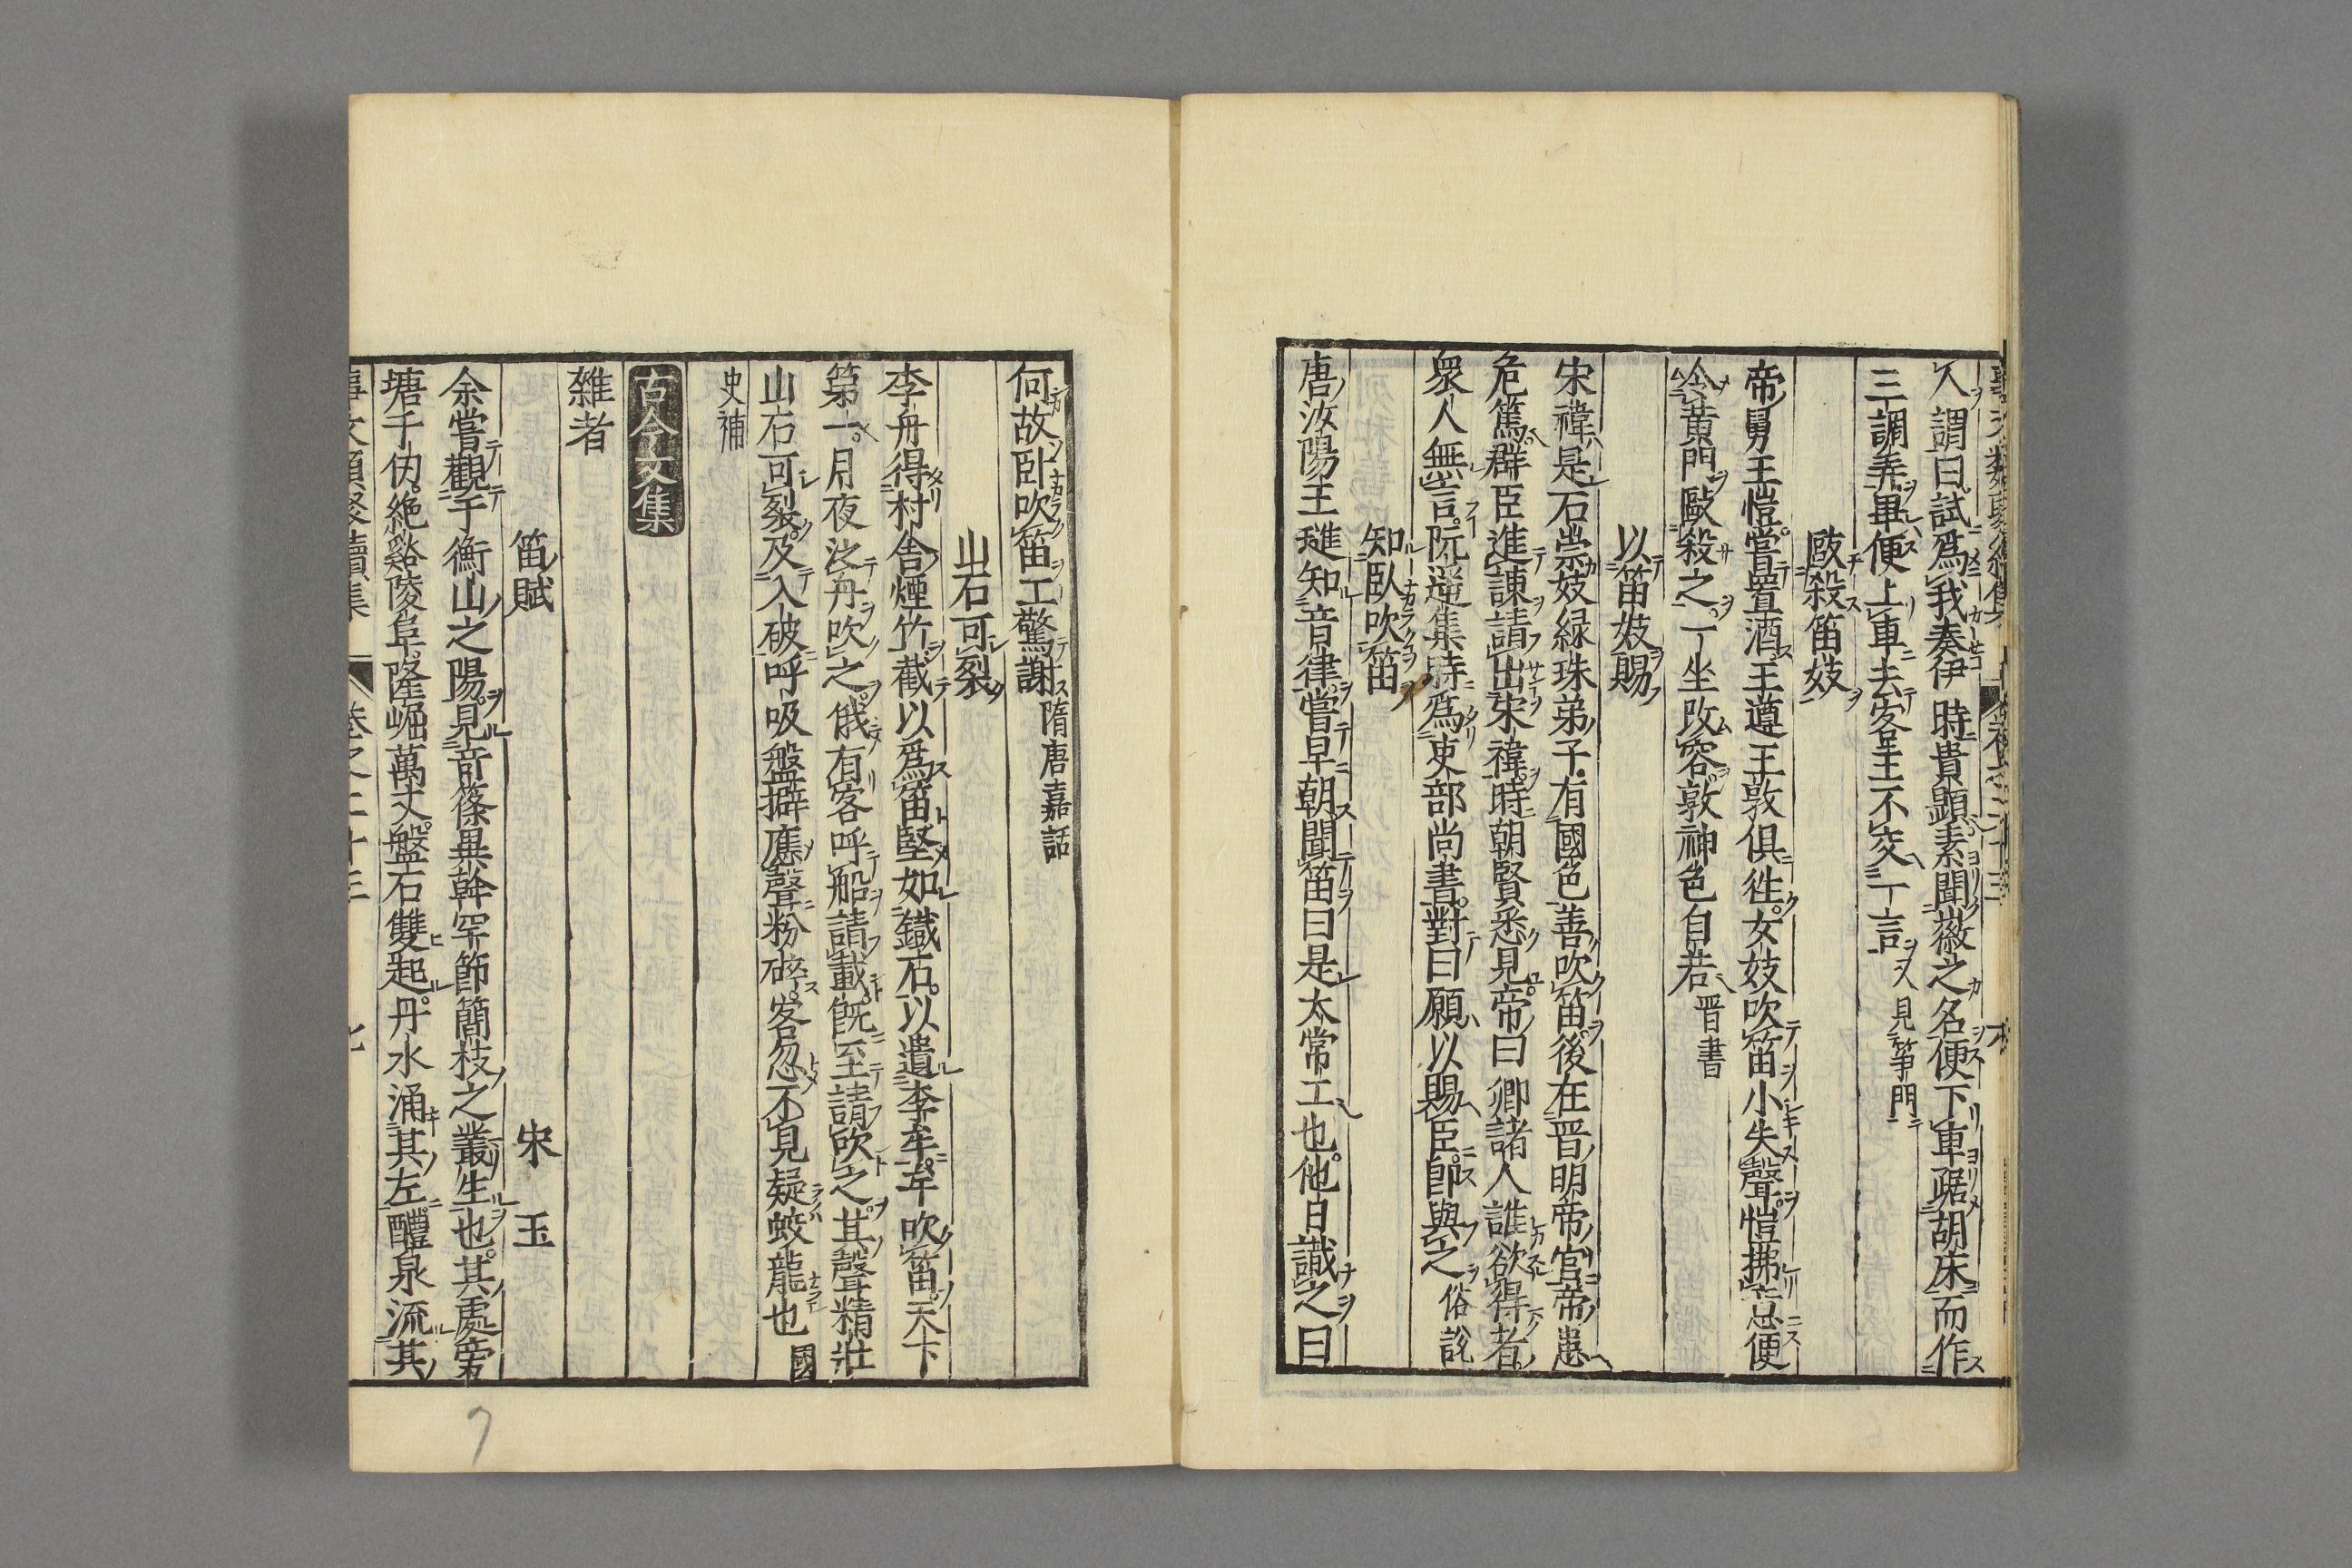 人謂曰試爲我奏伊時貴顯素聞徽之名便下車踞胡床而作
三調弄畢便上車去客主不交一言又見箏門
毆殺笛妓
帝舅王愷嘗置酒王遵王敦俱徃女妓吹笛小失聲愷拂意便
令黄門毆殺之一坐改容敦神色自若晋書
以笛妓賜
宋褘是石崇妓緑珠弟子有國色善吹笛後在晋明帝宮帝患
危篤群臣進諫請出宋褘時朝賢悉見帝曰卿諸人誰欲得者
衆人無言阮遥集時爲吏部尚書對曰願以賜臣即與之俗説
知臥吹笛
唐汝陽王璡知音律嘗早朝聞笛曰是太常工也他日識之曰
何故卧吹笛工驚謝隋唐嘉話
山石可裂
李舟得村舎煙竹截以爲笛堅如鐵石以遺李牟牟吹笛天下
第一月夜泛舟吹之俄有客呼船請載既至請吹之其聲精壯
山石可裂及入破呼吸盤擗應聲粉碎客忽不見疑蛟龍也國
史補
古今文集
雜者
笛賦 宋玉
余嘗觀于衡山之陽見奇篠異幹罕節簡枝之叢生也其處旁
塘千仞絶谿陵阜隆崛萬丈盤石雙起丹水涌其左醴泉流其
事文類聚續集 卷之二十三 七